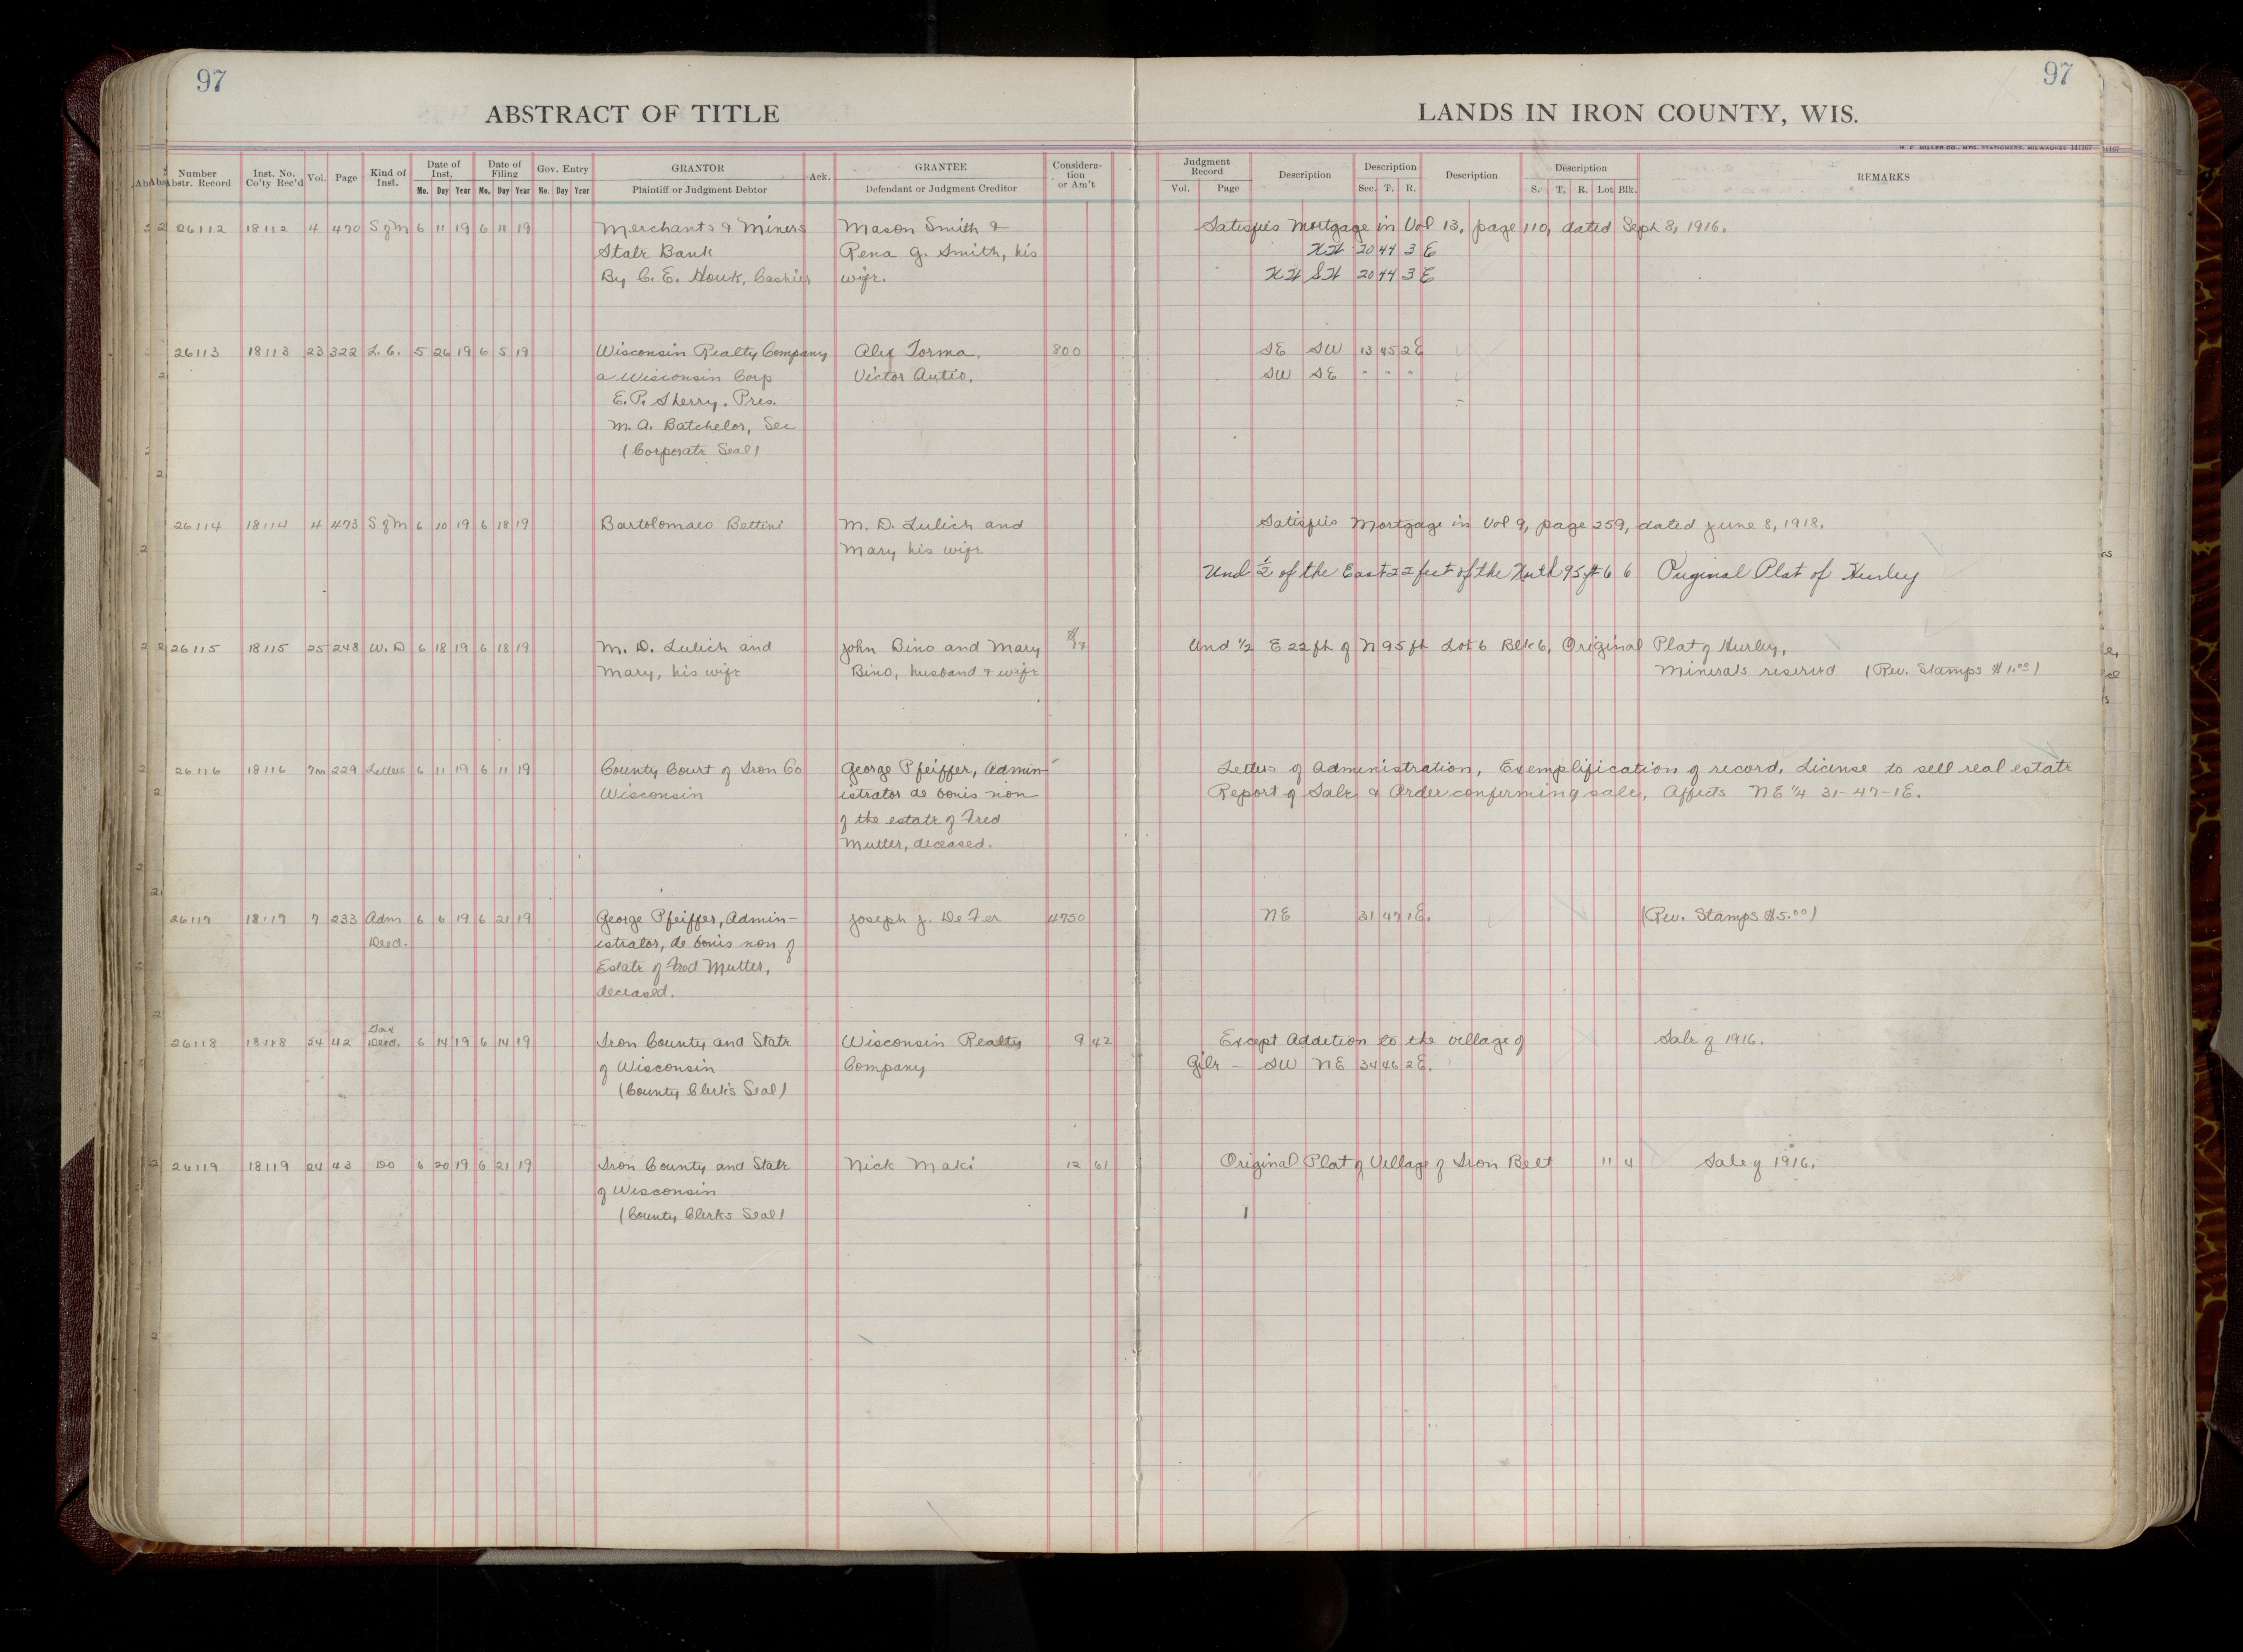 97
97
ABSTRACT OF TITLE
LANDS IN IRON COUNTY, WIS.
Number Abstr. Record Inst. No. Co'ty Rec'd Vol. Page Kind of Inst. Date of Inst. Mo. Day Year Date of Filing Mo. Day Year Gov. Entry No. Day Year GRANTOR Plaintiff or Judgment Debtor Ack. GRANTEE Defendant or Judgment Creditor Considera-tion or Am't Judgment Record Vol. Page Description Description Sec. T. R. Description Description S. T. R. Lot Blk. REMARKS
26112 18112 4 470 S of M 6 11 19 6 11 19 Merchants & Miners Mason Smith & Satisfies Mortgage in Vol 13, page 110, dated Sept 8, 1916.
State Bank Rena G. Smith, his 20 44 3 E
By C. E. Houk, Cashier wife. 20 44 3 E
26113 18113 23 322 L. C. 5 26 19 6 5 19 Wisconsin Realty Company Alex Torma, 800 SE SW 13 45 2E
a Wisconsin Corp Victor Autio, SW SE " " "
E. P. Sherry. Pres.
M. A. Batchelor, Sec
(Corporate Seal)
26114 18114 4 473 S of M 6 10 19 6 18 19 Bartolomaeo Bettini M. D. Lulich and Satisfies Mortgage in Vol 9, page 259, dated June 8, 1918.
Mary his wife
Und ½ of the East 22 feet of the North 95 ft 6 6 Original Plat of Hurley
26115 18115 25 248 W. D 6 18 19 6 18 19 M. D. Lulich and John Bino and Mary Und ½ E 22 ft of N 95 ft Lot 6 Blk 6, Original Plat of Hurley,
Mary, his wife Bino, husband & wife Minerals reserved (Rev. Stamps $1.00)
26116 18116 7m 229 Letters 6 11 19 6 11 19 County Court of Iron Co George Pfeiffer, Admin- Letters of Administration, Exemplification of record, License to sell real estate
Wisconsin istrator de bonis non Report of Sale & Order confirming sale, Affects NE ¼ 31-47-1E.
of the estate of Fred
Mutter, deceased.
26117 18117 7 233 Adm 6 6 19 6 21 19 George Pfeiffer, Admin- Joseph J. DeFer 4750 NE 31 47 1E. (Rev. Stamps $5.00)
Deed. istrator, de bonis non of
Estate of Fred Mutter,
deceased.
26118 18118 24 42 Tax Deed. 6 14 19 6 14 19 Iron County and State Wisconsin Realty 9 42 Except Addition to the village of Sale of 1916.
of Wisconsin Company Gile — SW NE 34 46 2E.
(County Clerk's Seal)
26119 18119 24 43 Do 6 20 19 6 21 19 Iron County and State Nick Maki 12 61 Original Plat of Village of Iron Belt 11 4 Sale of 1916.
of Wisconsin
(County Clerks Seal)